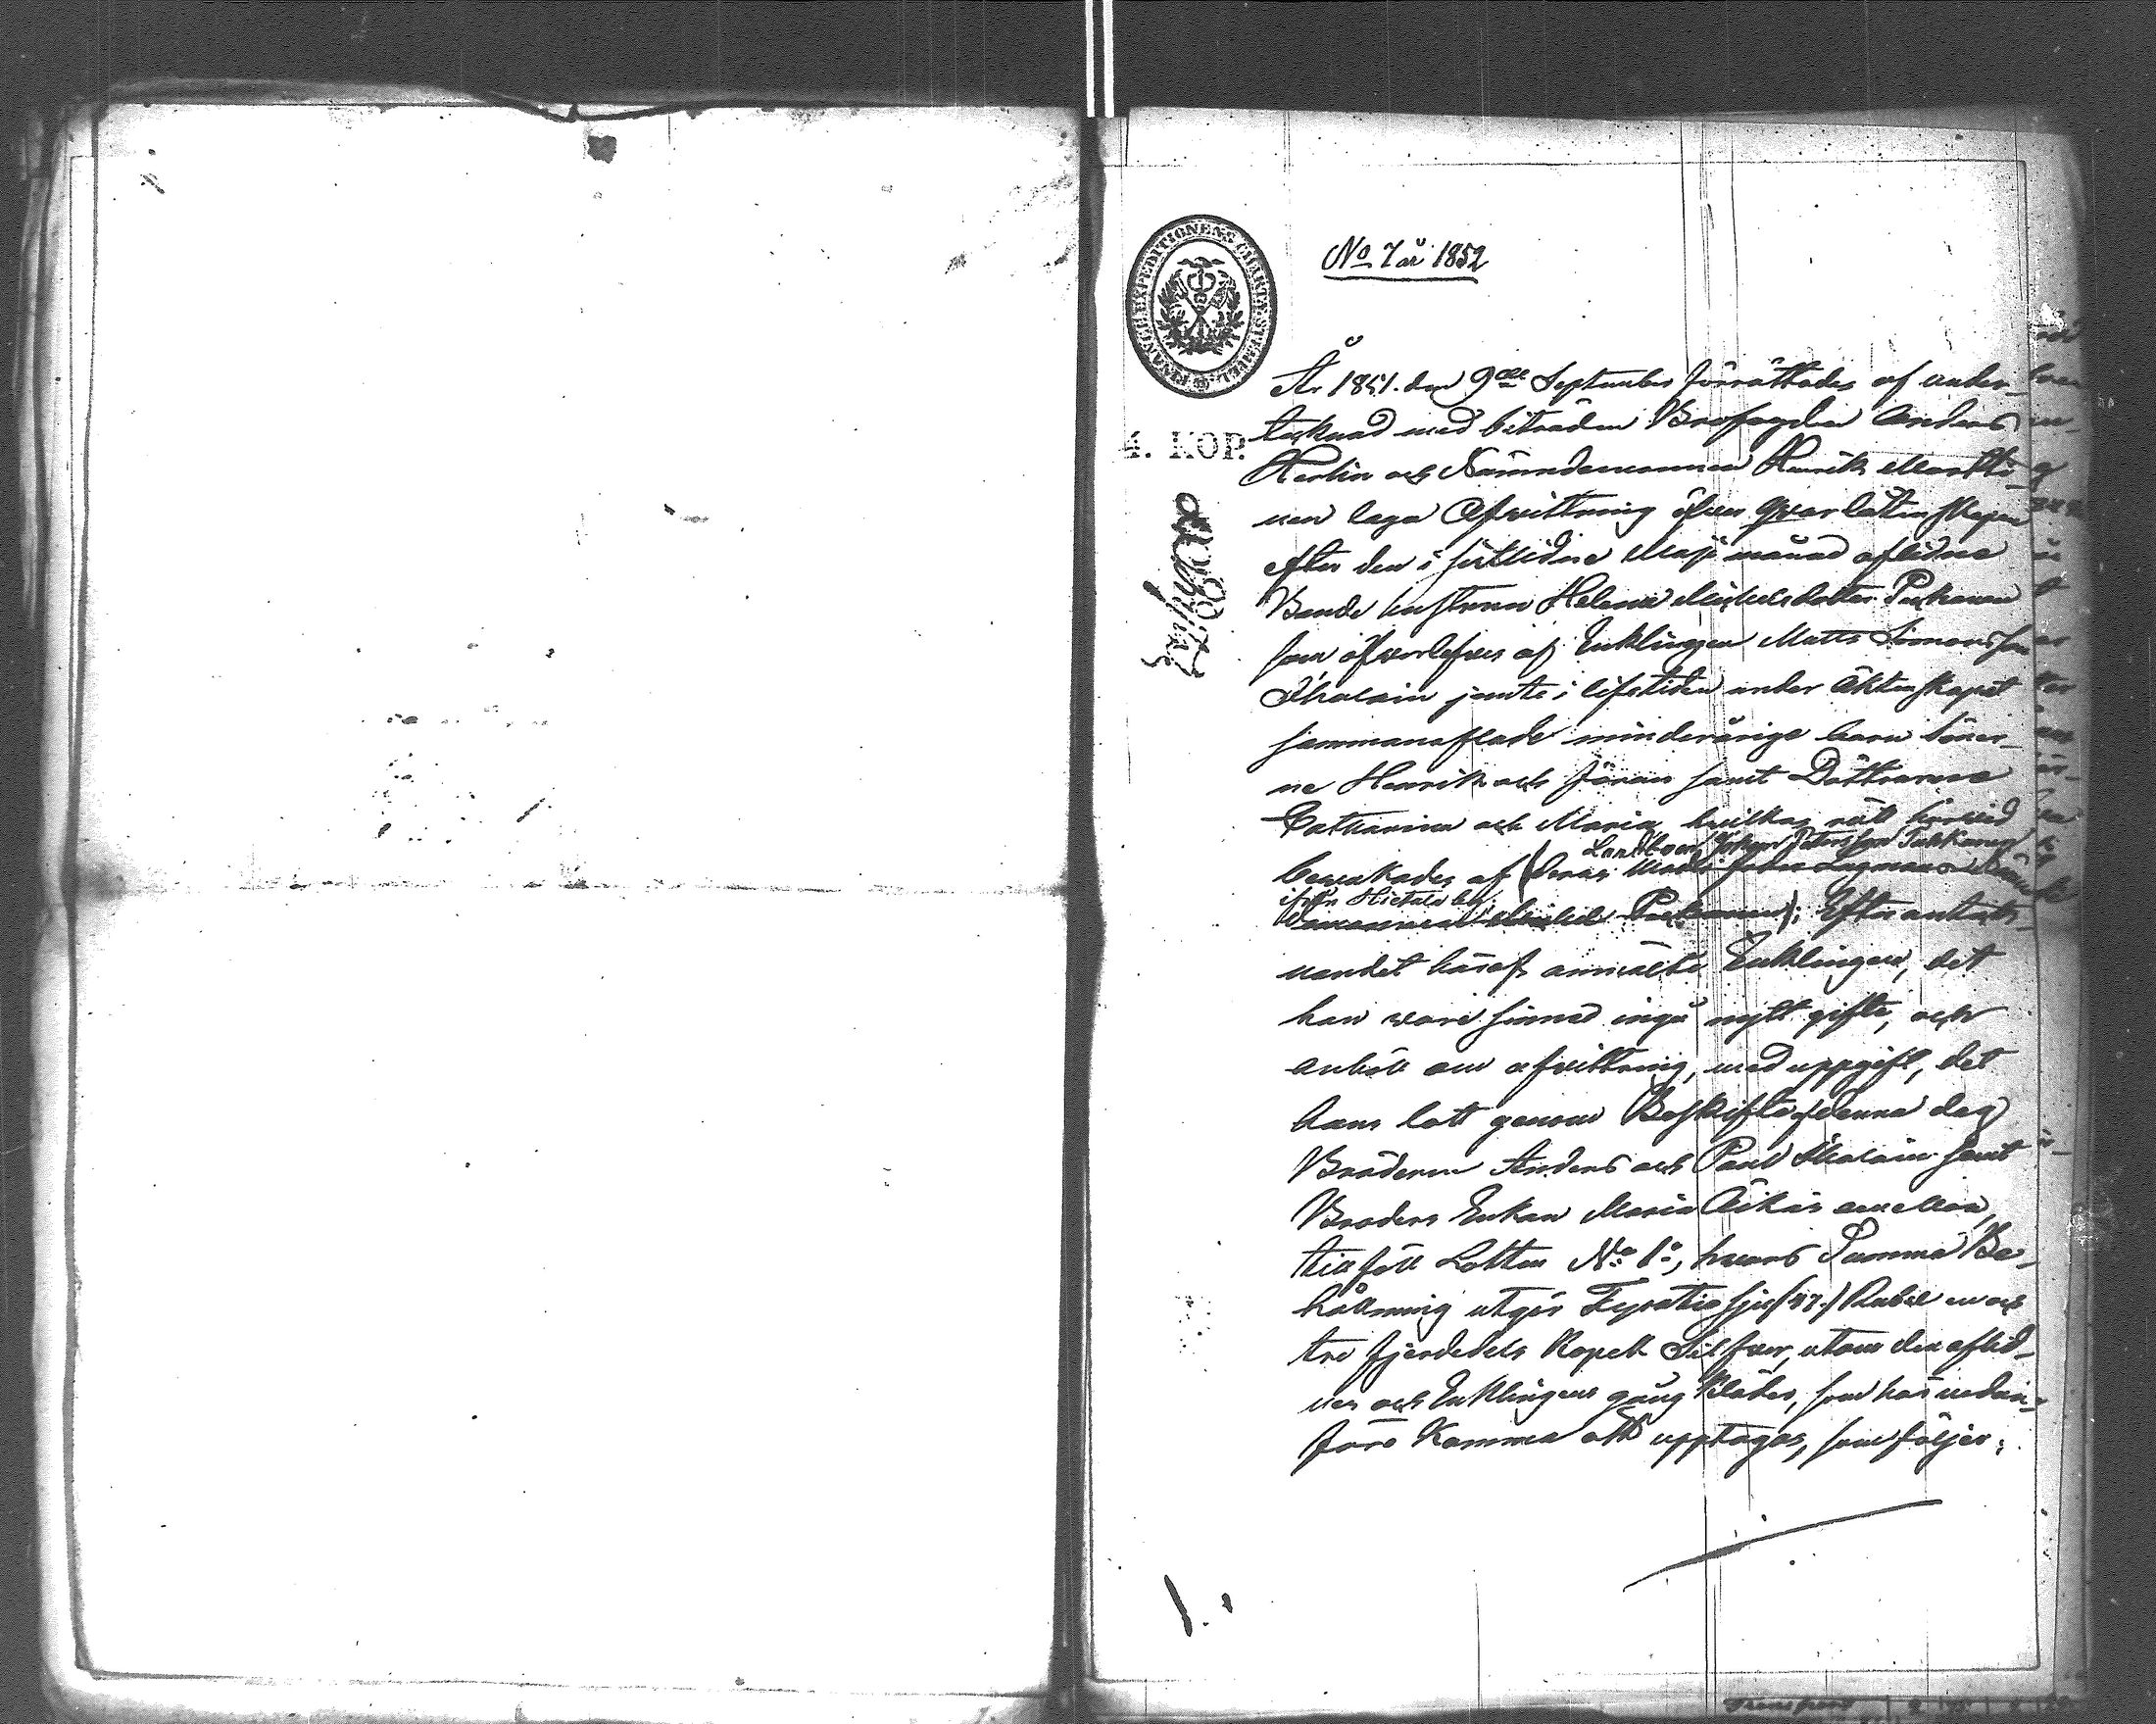 FINANCE EXPEDITIONENS CHARTÆ STEMPEL
4. KOP.
No 7 år 1852
År 1851. den 9de September förrättades af under-
tecknad med biträden Brofogden Anders
Herlin och Nämndemannen Henrik Martti-
nen laga Afvittring öfver qvarlåtenskapen
efter den i sistlidne Maji månad aflidne
Bonde hustrun Helena Michelsdotter
som öfverlefves af Enklingen Matts Simonsson
Ihalain jemte i lifstiden under äktenskapet
sammanaflade minderårige barn Söner-
ne Henrik och Göran samt Döttrarne
Catharina och Maria, hvilkas rätt härvid
Landbonden Johan Petersson
bevakades af (deras
ifrån Hietala by
Efter anteck-
nandet häraf anmälte Enklingen, det
han vore sinnad ingå nytt gifte, och
anhöll om afvittring, med uppgift, det
hans lott genom Boskifte denna dag
Bröderne Anders och Paul Ihalain samt
Broders Enkan Maria Äikäs emellan,
tillföll Lotten No 1o, hvars Summa Be-
hållning utgör Fyratiosju (47.) Rubel en och
tre fjerdedels Kopek Silfver, utom den aflid-
nes och Enklingens gång kläder, som här nedan-
före komma att upptagas, som följer: